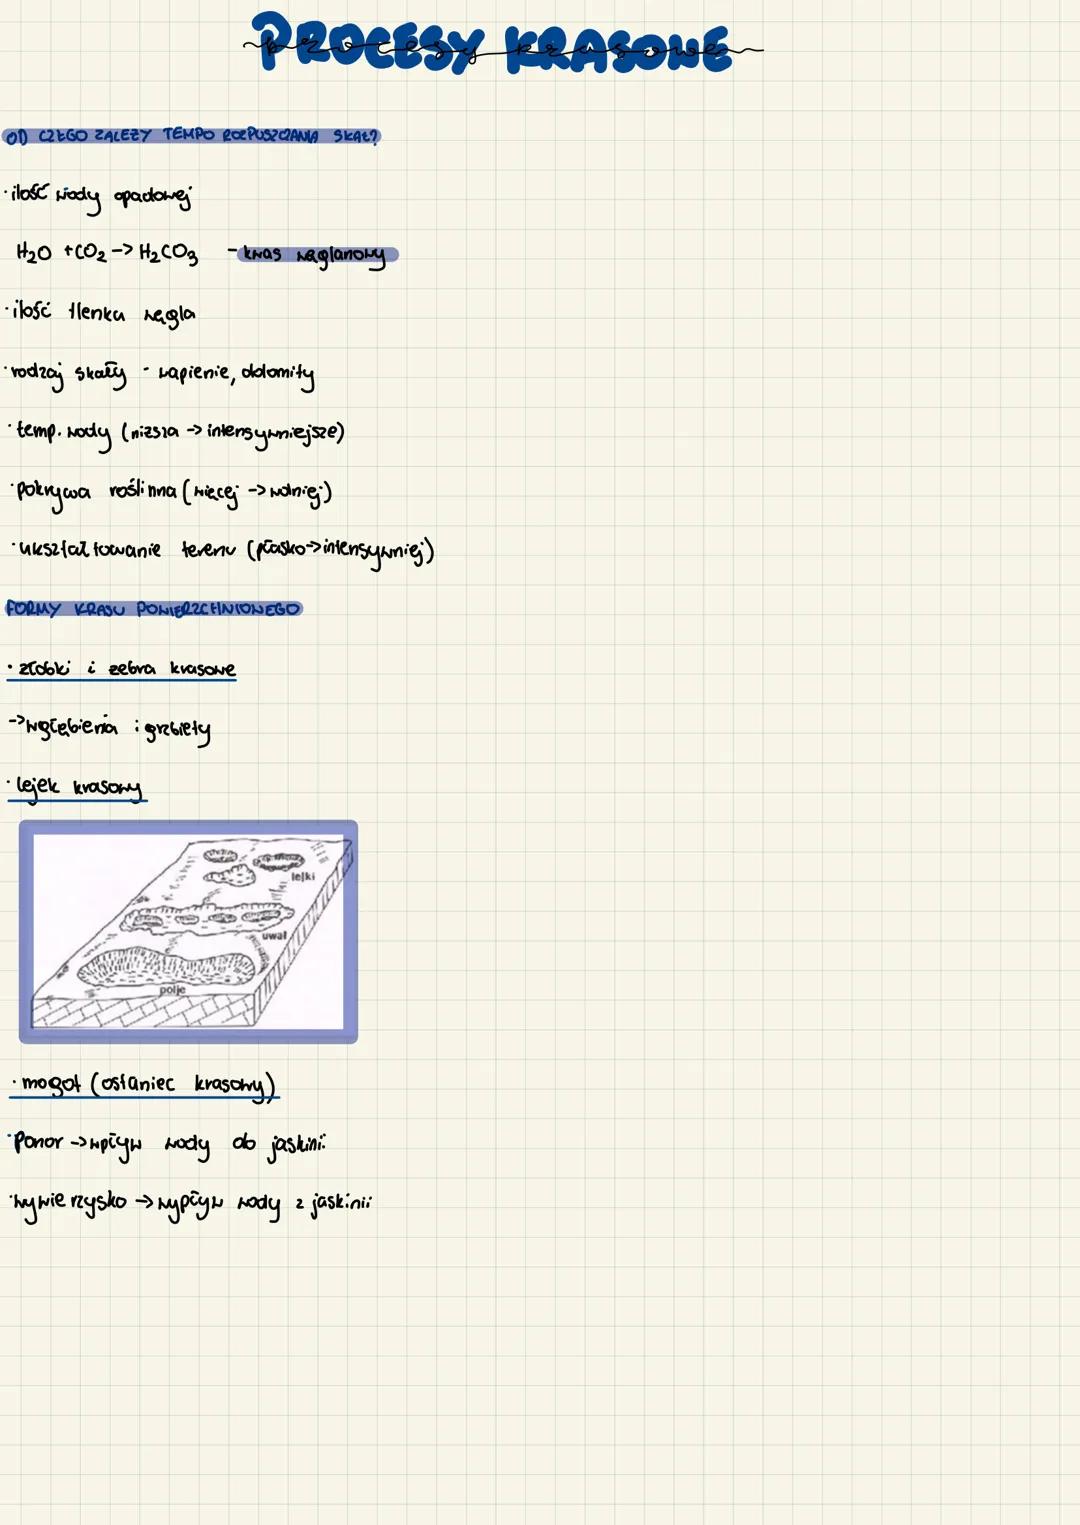 PROCESY KRASOWE
procesy krasowe
OD CZEGO ZALEŻY TEMPO ROZPUSZCZANIA SKAŁ?
· ilość wody opadowej
H₂O + CO₂ -> H₂CO₃ - kwas węglanowy
· ilość tlenku węgla
· rodzaj skały - wapienie, dolomity
· temp. wody (niższa -> intensywniejsze)
· pokrywa roślinna (więcej -> wolniej)
· ukształtowanie terenu (płasko -> intensywniej)
FORMY KRASU POWIERZCHNIOWEGO
· żłobki i żebra krasowe
-> wgłębienia i grzbiety
· lejek krasowy
lejki
uwał
polje
· mogot (ostaniec krasowy)
· Ponor -> wpływ wody do jaskini
· wywierzysko -> wypływ wody z jaskinii